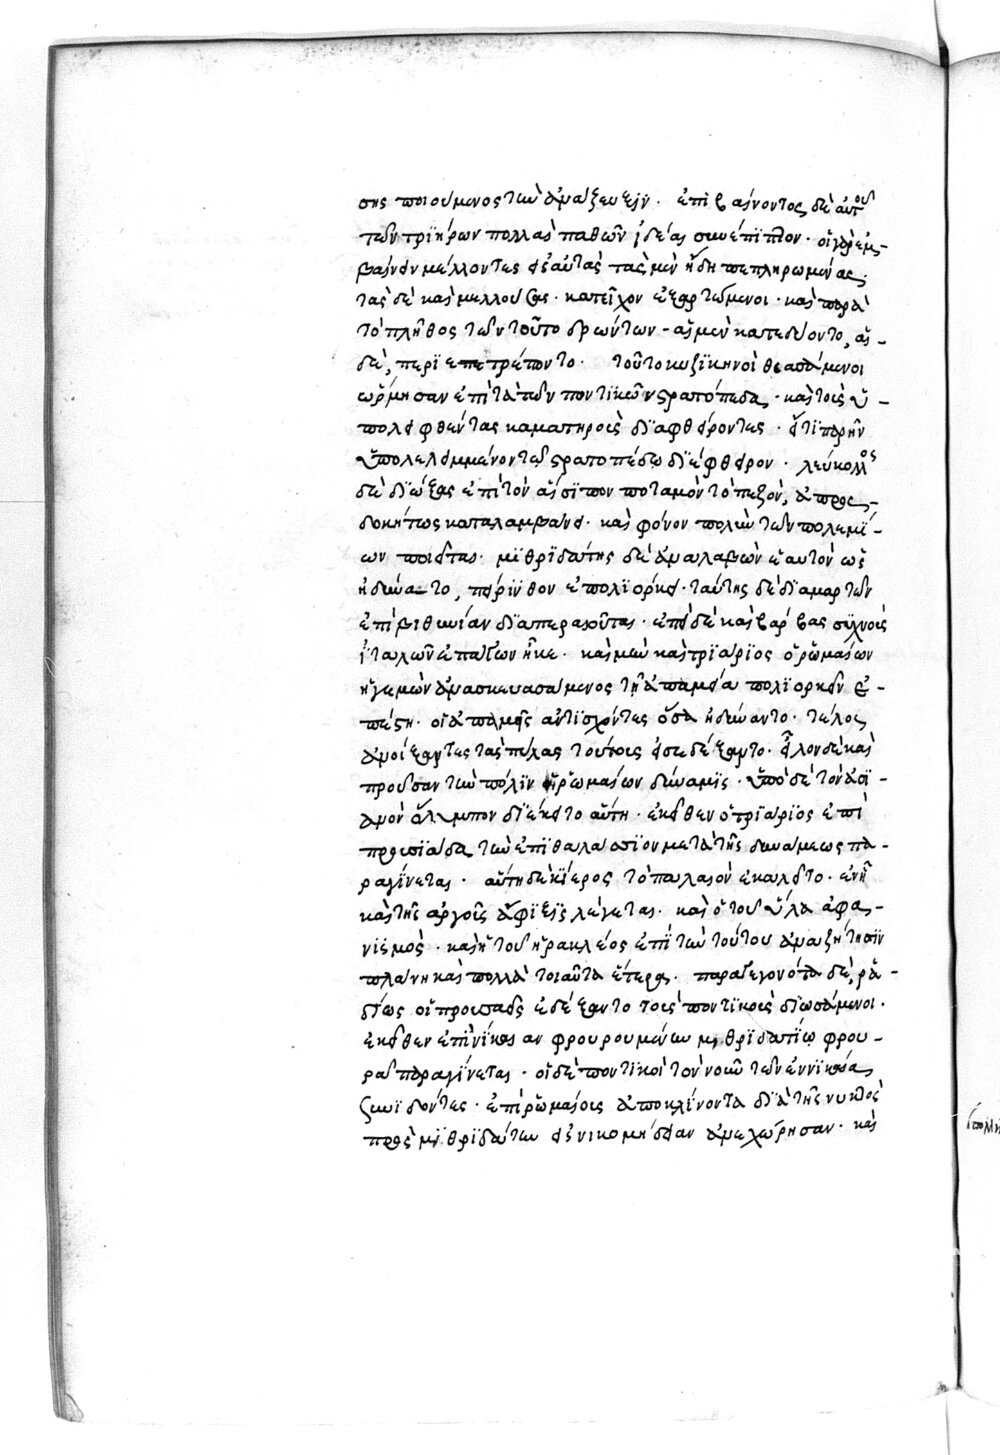 σης ποιούμενος τὴν ἀνάζευξιν. ἐπιβαίνοντος δὲ αὐτοῦ
τῶν τριήρων πολλαὶ παθῶν ἰδέαι συνέπιπτον. οἱ γὰρ ἐμ-
βαίνειν μέλλοντες εἰς αὐτὰς τὰς μὲν ἤδη πεπληρωμένας,
τὰς δὲ καὶ μελλούσας. κατεῖχον ἐξαρτώμενοι. καὶ παρὰ
τὸ πλῆθος τῶν τοῦτο δρώντων αἱ μὲν κατεδύοντο, αἱ
δὲ, περιετρέποντο. τοῦτο κυζικηνοὶ θεασάμενοι
ὥρμησαν ἐπὶ τὰ τῶν ποντικῶν στρατόπεδα. καὶ τοὺς ὑ-
πολειφθέντας καματηροὺς διαφθείροντες. ὅτι παρῆν
ὑπολελειμμένον τῷ στρατοπέδῳ διέφθειρον. λεύκολλος
δὲ διώξας ἐπὶ τὸν αἴσιπον ποταμὸν τὸ πεζὸν, ἀπροσ-
δοκήτως καταλαμβάνει. καὶ φόνον πολὺν τῶν πολεμί-
ων ποιεῖται. μιθριδάτης δὲ ἀναλαβὼν ἑαυτὸν ὡς
ἠδύνατο, πέρινθον ἐπολιόρκει. ταύτης δὲ διαμαρτὼν
ἐπὶ βιθυνίαν διαπεραιοῦται. ἐπεὶ δὲ καὶ βάρβας συχνοὺς
ἰταλῶν ἐπάγων ἧκε. καὶ μὴν καὶ τριάριος ὁ ῥωμαίων
ἡγεμὼν ἀνασκευασάμενος τῇ ἀπαμείᾳ πολιορκεῖν ἐ-
πέστη. οἱ ἀπαμεῖς ἀντισχόντες ὅσα ἠδύναντο. τέλος
ἀνοίξαντες τὰς πύλας τούτους εἰσεδέξαντο. εἷλον δὲ καὶ
προῦσαν τὴν πόλιν ἡ ῥωμαίων δύναμις. ὑπὸ δὲ τὸν ἀσι-
ανὸν ὄλυμπον διέκειτο αὕτη. ἐκεῖθεν ὁ τριάριος ἐπὶ
προυσιάδα τὴν ἐπιθαλάσσιον μετὰ τῆς δυνάμεως πα-
ραγίνεται. αὕτη δὲ κίερος τὸ παλαιὸν ἐκαλεῖτο. ἐν ᾗ
καὶ τῆς ἀργοῦς ἄφιξις λέγεται. καὶ ὁ τοῦ ὕλα ἀφα-
νισμὸς. καὶ ἡ τοῦ ἡρακλέος ἐπὶ τὴν τούτου ἀναζήτησιν
πλάνη καὶ πολλὰ τοιαῦτα ἕτερα. παραγεγονότα δὲ, ῥᾳ-
δίως οἱ προυσαεῖς ἐδέξαντο τοὺς ποντικοὺς διωσάμενοι.
ἐκεῖθεν ἐπὶ νίκαιαν φρουρουμένην μιθριδατείῳ φρου-
ρᾷ παραγίνεται. οἱ δὲ ποντικοὶ τὸν νοῦν τῶν ἐν νικαίᾳ
συνιδόντες. ἐπὶ ῥωμαίοις ἀποκλίνοντα διὰ τῆς νυκτὸς
πρὸς μιθριδάτην εἰς νικομήδειαν ἀνεχώρησαν. καὶ